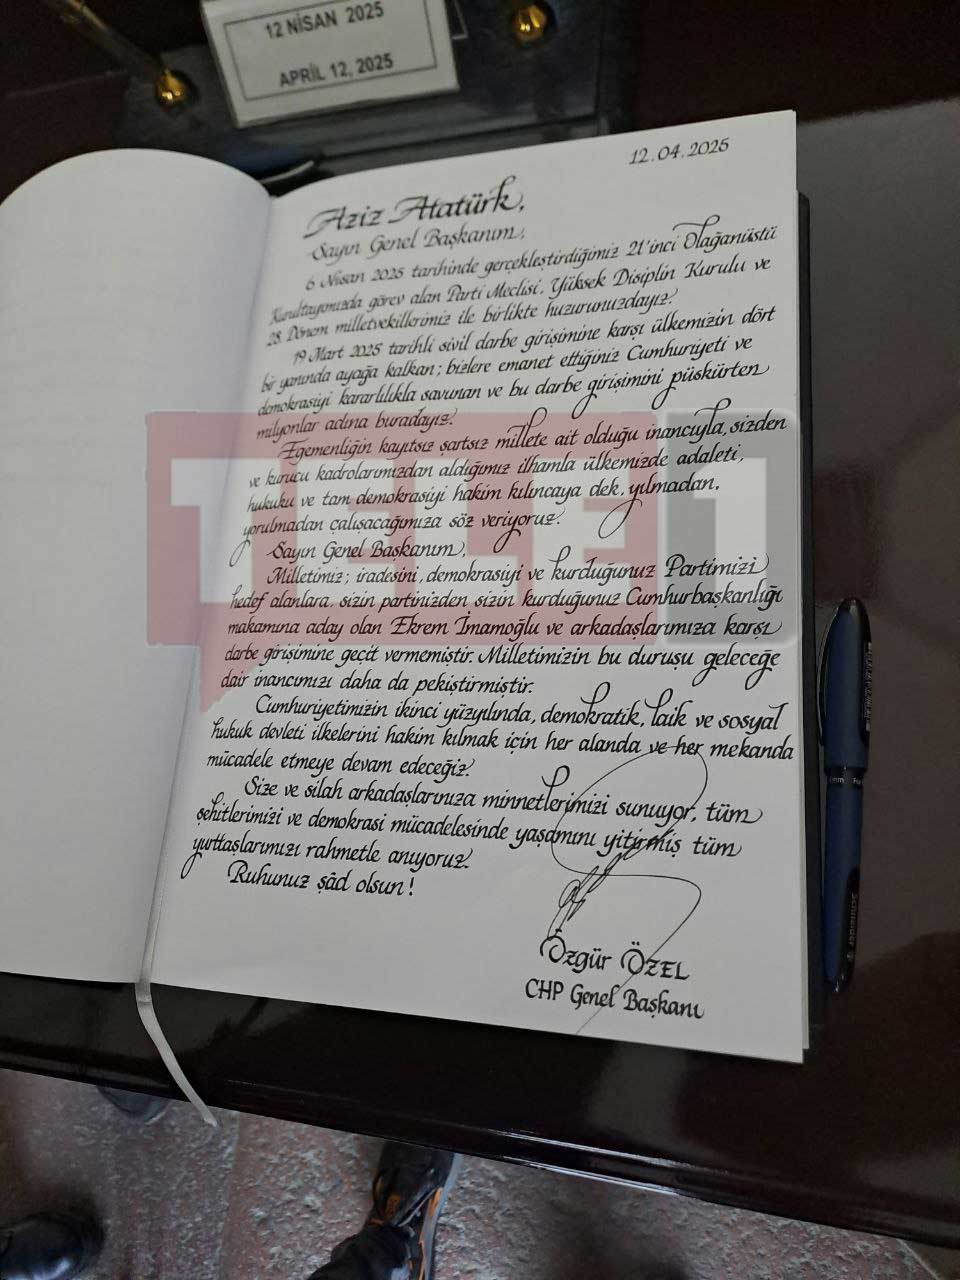 12 NİSAN 2025
APRİL 12, 2025
12.04.2025
Aziz Atatürk,
Sayın Genel Başkanım,
6 Nisan 2025 tarihinde gerçekleştirdiğimiz 21'inci Olağanüstü
Kurultayımızda görev alan Parti Meclisi, Yüksek Disiplin Kurulu ve
28. Dönem milletvekillerimiz ile birlikte huzurunuzdayız.
19 Mart 2025 tarihli sivil darbe girişimine karşı ülkemizin dört
bir yanında ayağa kalkan; bizlere emanet ettiğiniz Cumhuriyeti ve
demokrasiyi kararlılıkla savunan ve bu darbe girişimini püskürten
milyonlar adına buradayız.
Egemenliğin kayıtsız şartsız millete ait olduğu inancıyla, sizden
ve kurucu kadrolarımızdan aldığımız ilhamla ülkemizde adaleti,
hukuku ve tam demokrasiyi hakim kılıncaya dek, yılmadan,
yorulmadan çalışacağımıza söz veriyoruz.
Sayın Genel Başkanım,
Milletimiz; iradesini, demokrasiyi ve kurduğunuz Partimizi
hedef alanlara, sizin partinizden sizin kurduğunuz Cumhurbaşkanlığı
makamına aday olan Ekrem İmamoğlu ve arkadaşlarımıza karşı
darbe girişimine geçit vermemiştir. Milletimizin bu duruşu geleceğe
dair inancımızı daha da pekiştirmiştir.
Cumhuriyetimizin ikinci yüzyılında, demokratik, laik ve sosyal
hukuk devleti ilkelerini hakim kılmak için her alanda ve her mekanda
mücadele etmeye devam edeceğiz.
Size ve silah arkadaşlarınıza minnetlerimizi sunuyor, tüm
şehitlerimizi ve demokrasi mücadelesinde yaşamını yitirmiş tüm
yurttaşlarımızı rahmetle anıyoruz.
Ruhunuz şâd olsun!
Özgür ÖZEL
CHP Genel Başkanı
TELE1
Schneider